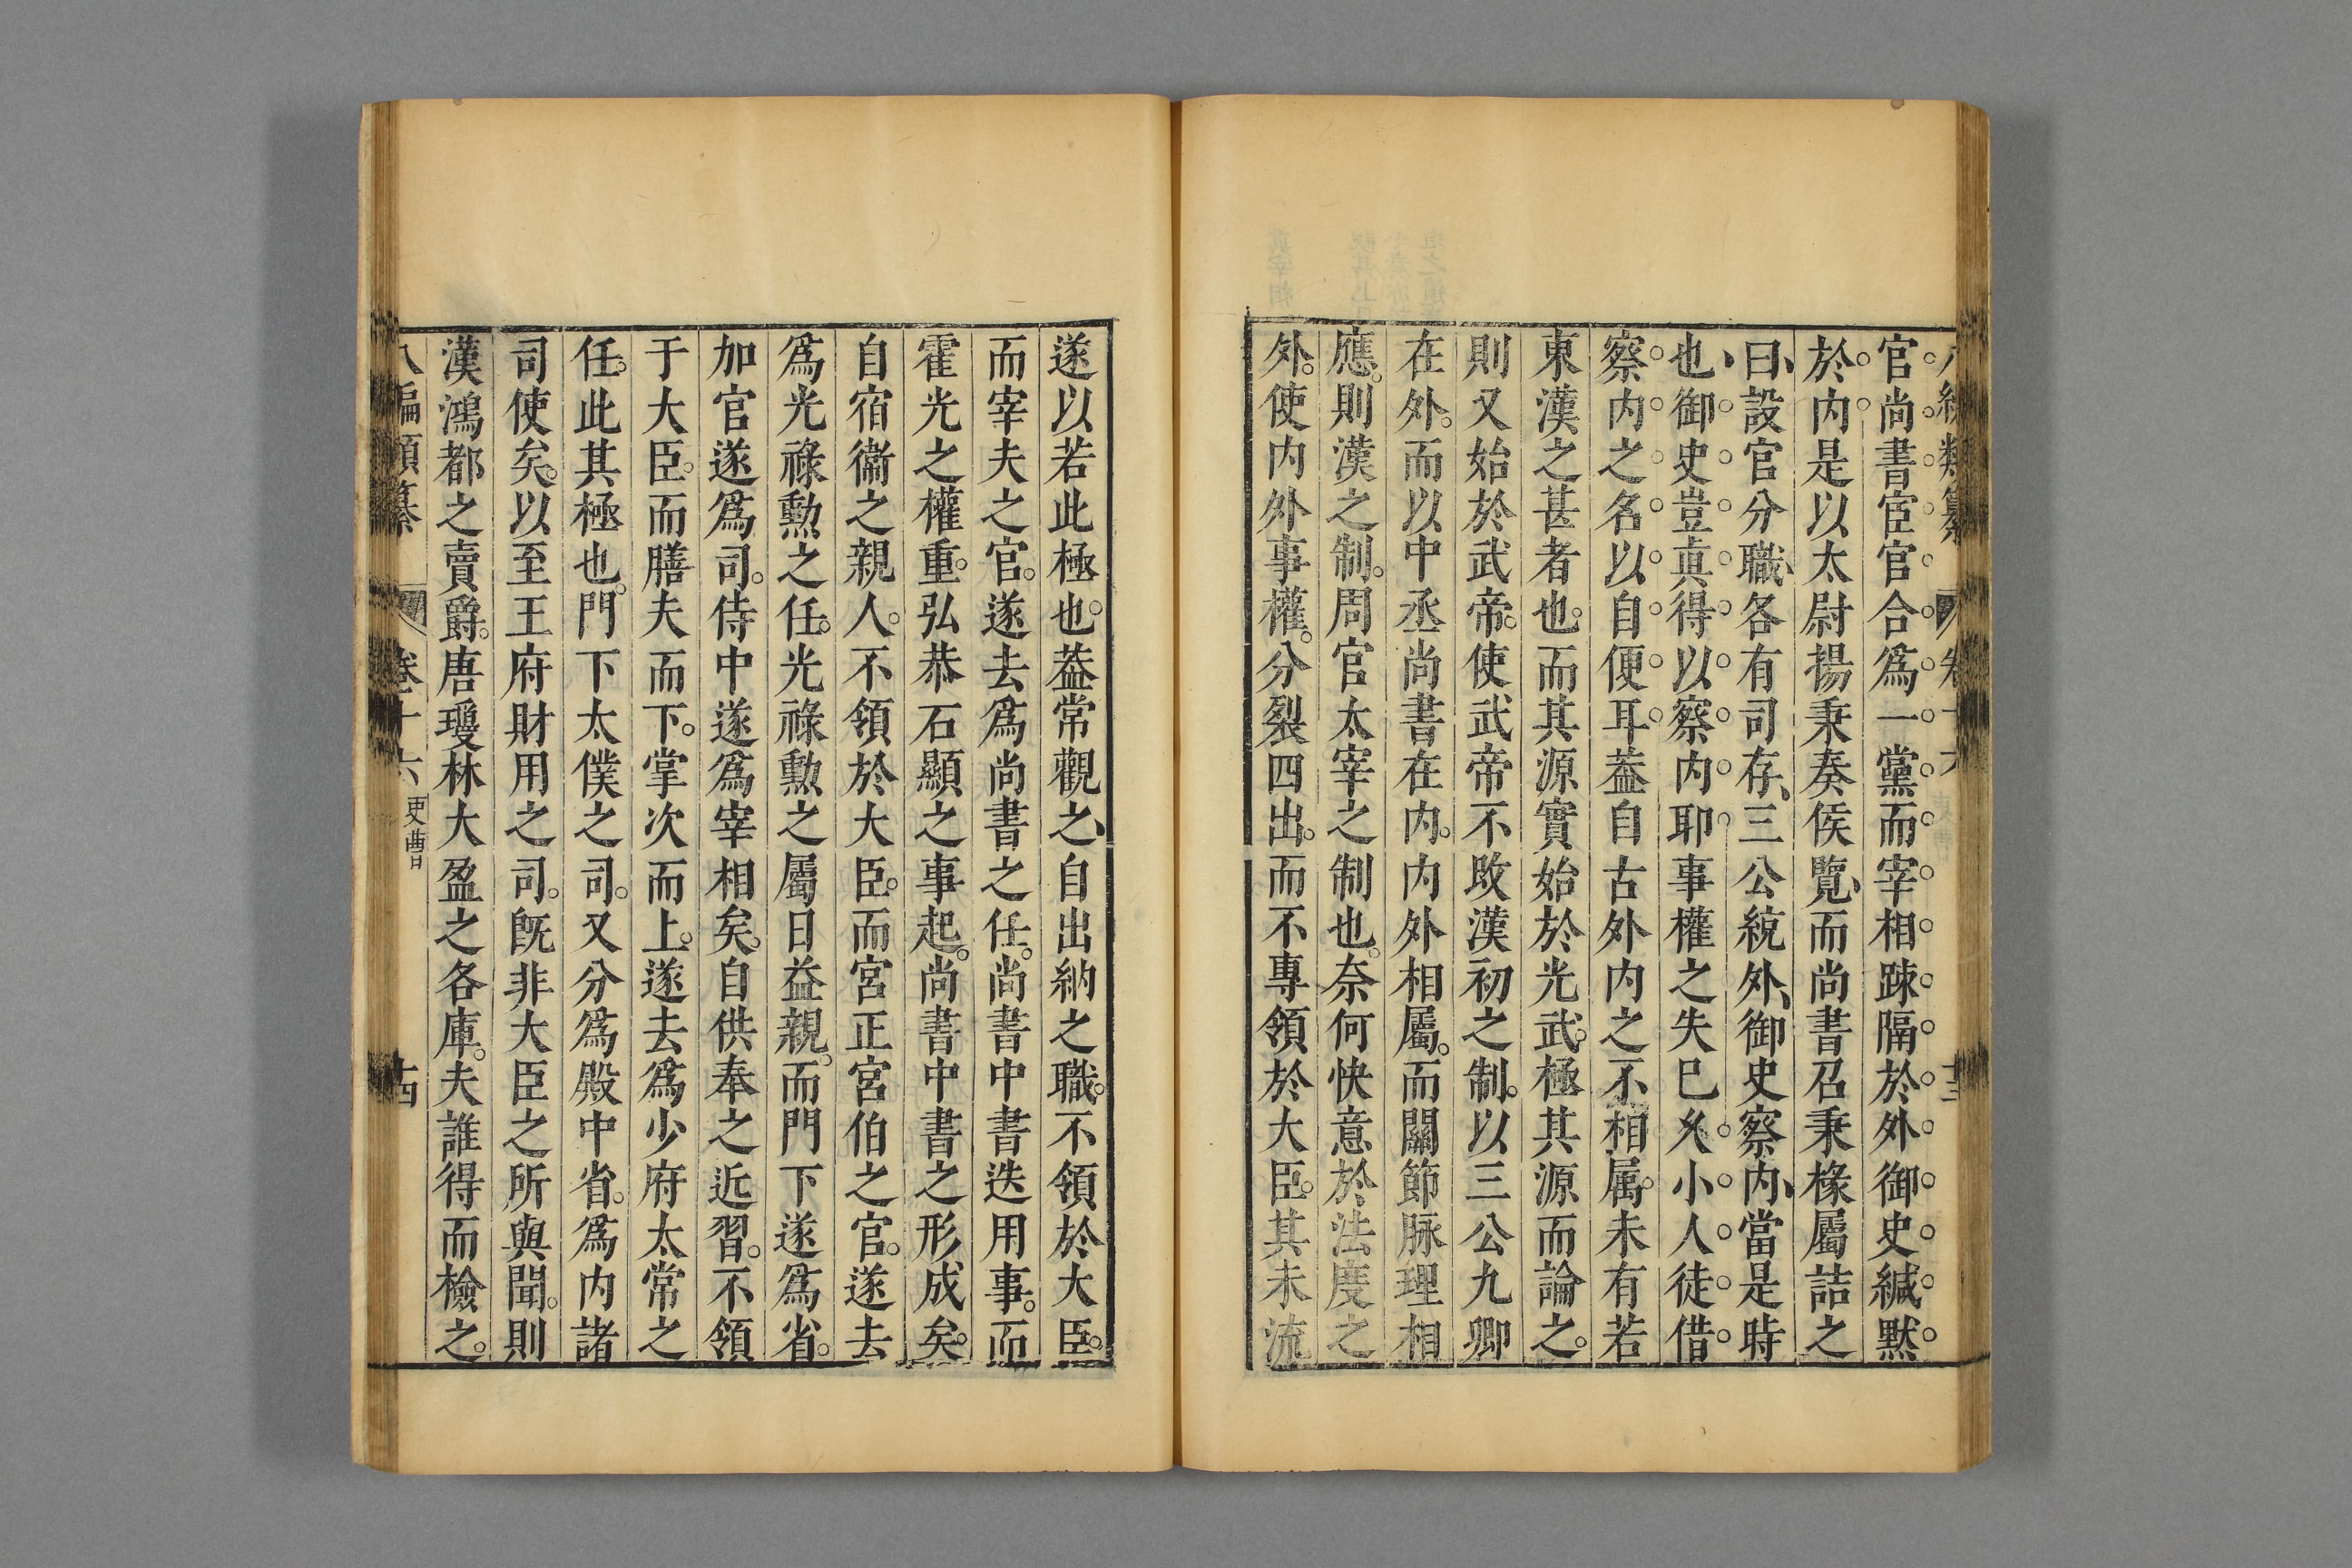 官尚書宦官合爲一黨而宰相踈隔於外御史緘默
於内是以太尉揚秉奏侯覽而尚書召秉椽屬詰之
曰設官分職各有司存三公統外御史察内當是時
也御史豈眞得以察内耶事權之失巳乆小人徒借
察内之名以自便耳葢自古外内之不相属未有若
東漢之甚者也而其源實始於光武極其源而論之
則又始於武帝使武帝不攺漢初之制以三公九卿
在外而以中丞尚書在内内外相屬而關節脉理相
應則漢之制周官太宰之制也奈何快意於法度之
外使内外事權分裂四出而不專領於大臣其未流
遂以若此極也葢常觀之自出納之職不領於大臣
而宰夫之官遂去爲尚書之任尚書中書迭用事而
霍光之權重弘恭石顯之事起尚書中書之形成矣
自宿衞之親人不領於大臣而宮正宮伯之官遂去
爲光祿勲之任光祿勲之屬日益親而門下遂爲省
加官遂爲司侍中遂爲宰相矣自供奉之近習不領
于大臣而膳夫而下掌次而上遂去爲少府太常之
任此其極也門下太僕之司又分爲殿中省爲内諸
司使矣以至王府財用之司旣非大臣之所與聞則
漢鴻都之賣爵唐瓊林大盈之各庫夫誰得而檢之
八編類纂 卷十六 吏曹 十四